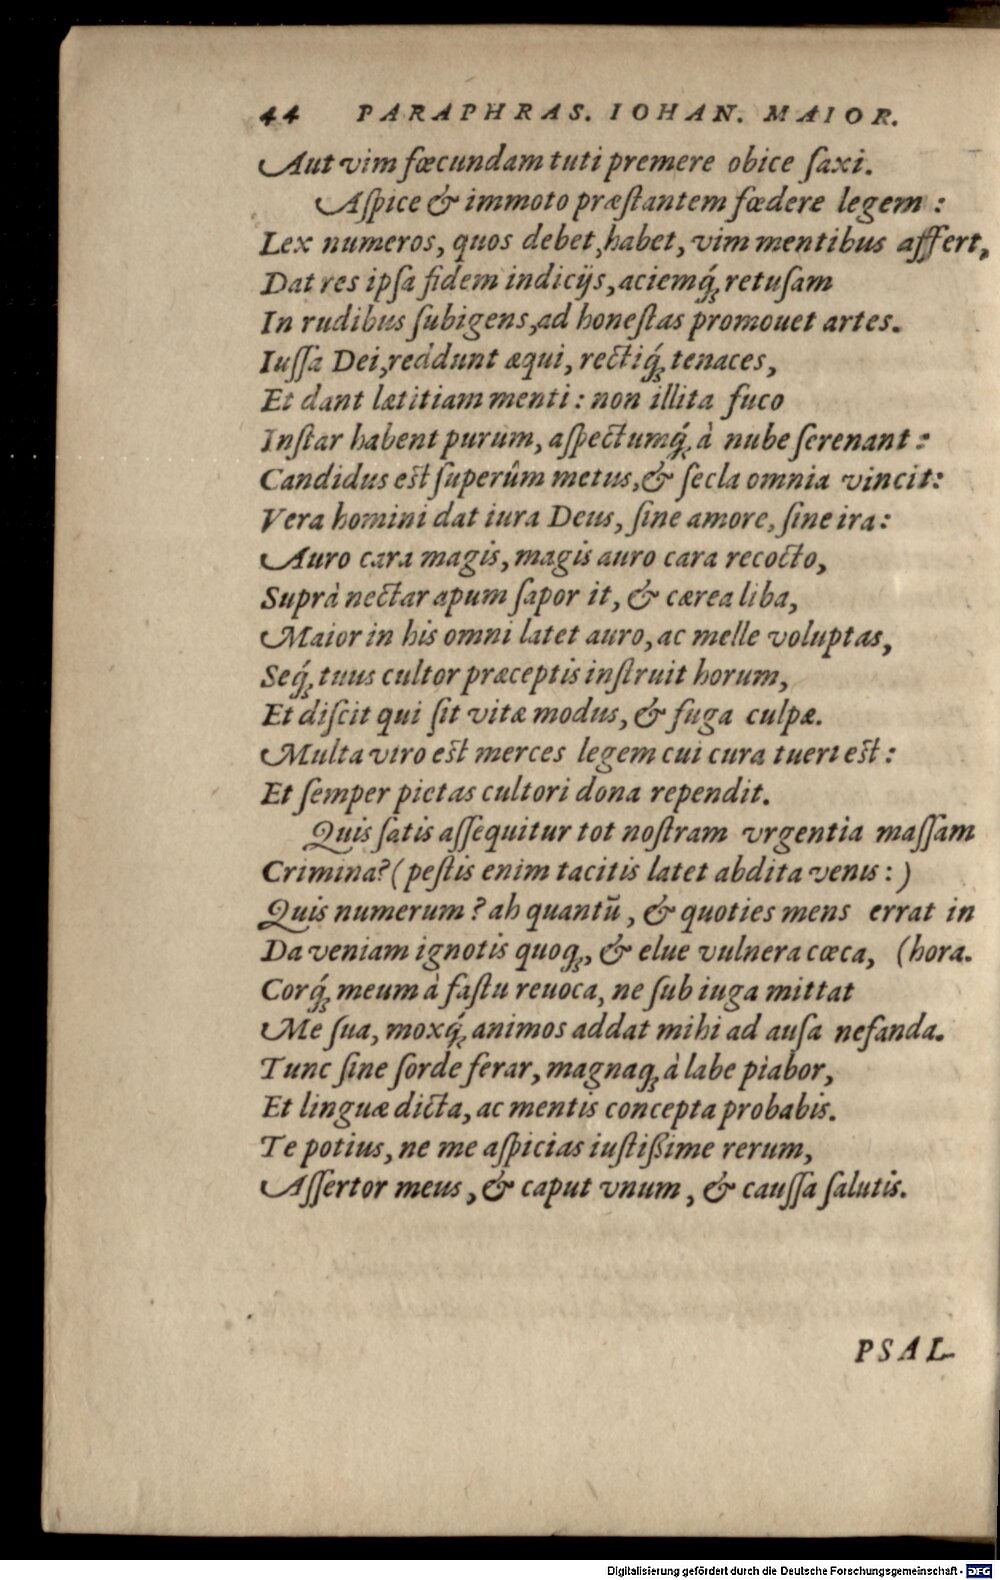 44 PARAPHRAS. IOHAN. MAIOR.
Aut vim fœcundam tuti premere obice ſaxi.
Aſpice & immoto præſtantem fœdere legem :
Lex numeros, quos debet, habet, vim mentibus affert,
Dat res ipſa fidem indicijs, aciemq́ꝫ retuſam
In rudibus ſubigens, ad honeſtas promouet artes.
Iuſſa Dei, reddunt æqui, rectiq́ꝫ tenaces,
Et dant lætitiam menti : non illita fuco
Inſtar habent purum, aſpectumq́ꝫ à nube ſerenant :
Candidus eſt ſuperûm metus, & ſecla omnia vincit:
Vera homini dat iura Deus, ſine amore, ſine ira :
Auro cara magis, magis auro cara recocto,
Suprà nectar apum ſapor it, & cærea liba,
Maior in his omni latet auro, ac melle voluptas,
Seq́ꝫ tuus cultor præceptis inſtruit horum,
Et diſcit qui ſit vitæ modus, & fuga culpæ.
Multa viro eſt merces legem cui cura tueri eſt :
Et ſemper pietas cultori dona rependit.
Quis ſatis aſſequitur tot noſtram vrgentia maſſam
Crimina? (peſtis enim tacitis latet abdita venis : )
Quis numerum ? ah quantũ, & quoties mens errat in
Da veniam ignotis quoqꝫ, & elue vulnera cœca, (hora.
Corq́ꝫ meum à faſtu reuoca, ne ſub iuga mittat
Me ſua, moxq́ꝫ animos addat mihi ad auſa nefanda.
Tunc ſine ſorde ferar, magnaqꝫ à labe piabor,
Et linguæ dicta, ac mentis concepta probabis.
Te potius, ne me aſpicias iuſtißime rerum,
Aſſertor meus, & caput vnum, & cauſſa ſalutis.
PSAL-
Digitalisierung gefördert durch die Deutsche Forschungsgemeinschaft - DFG